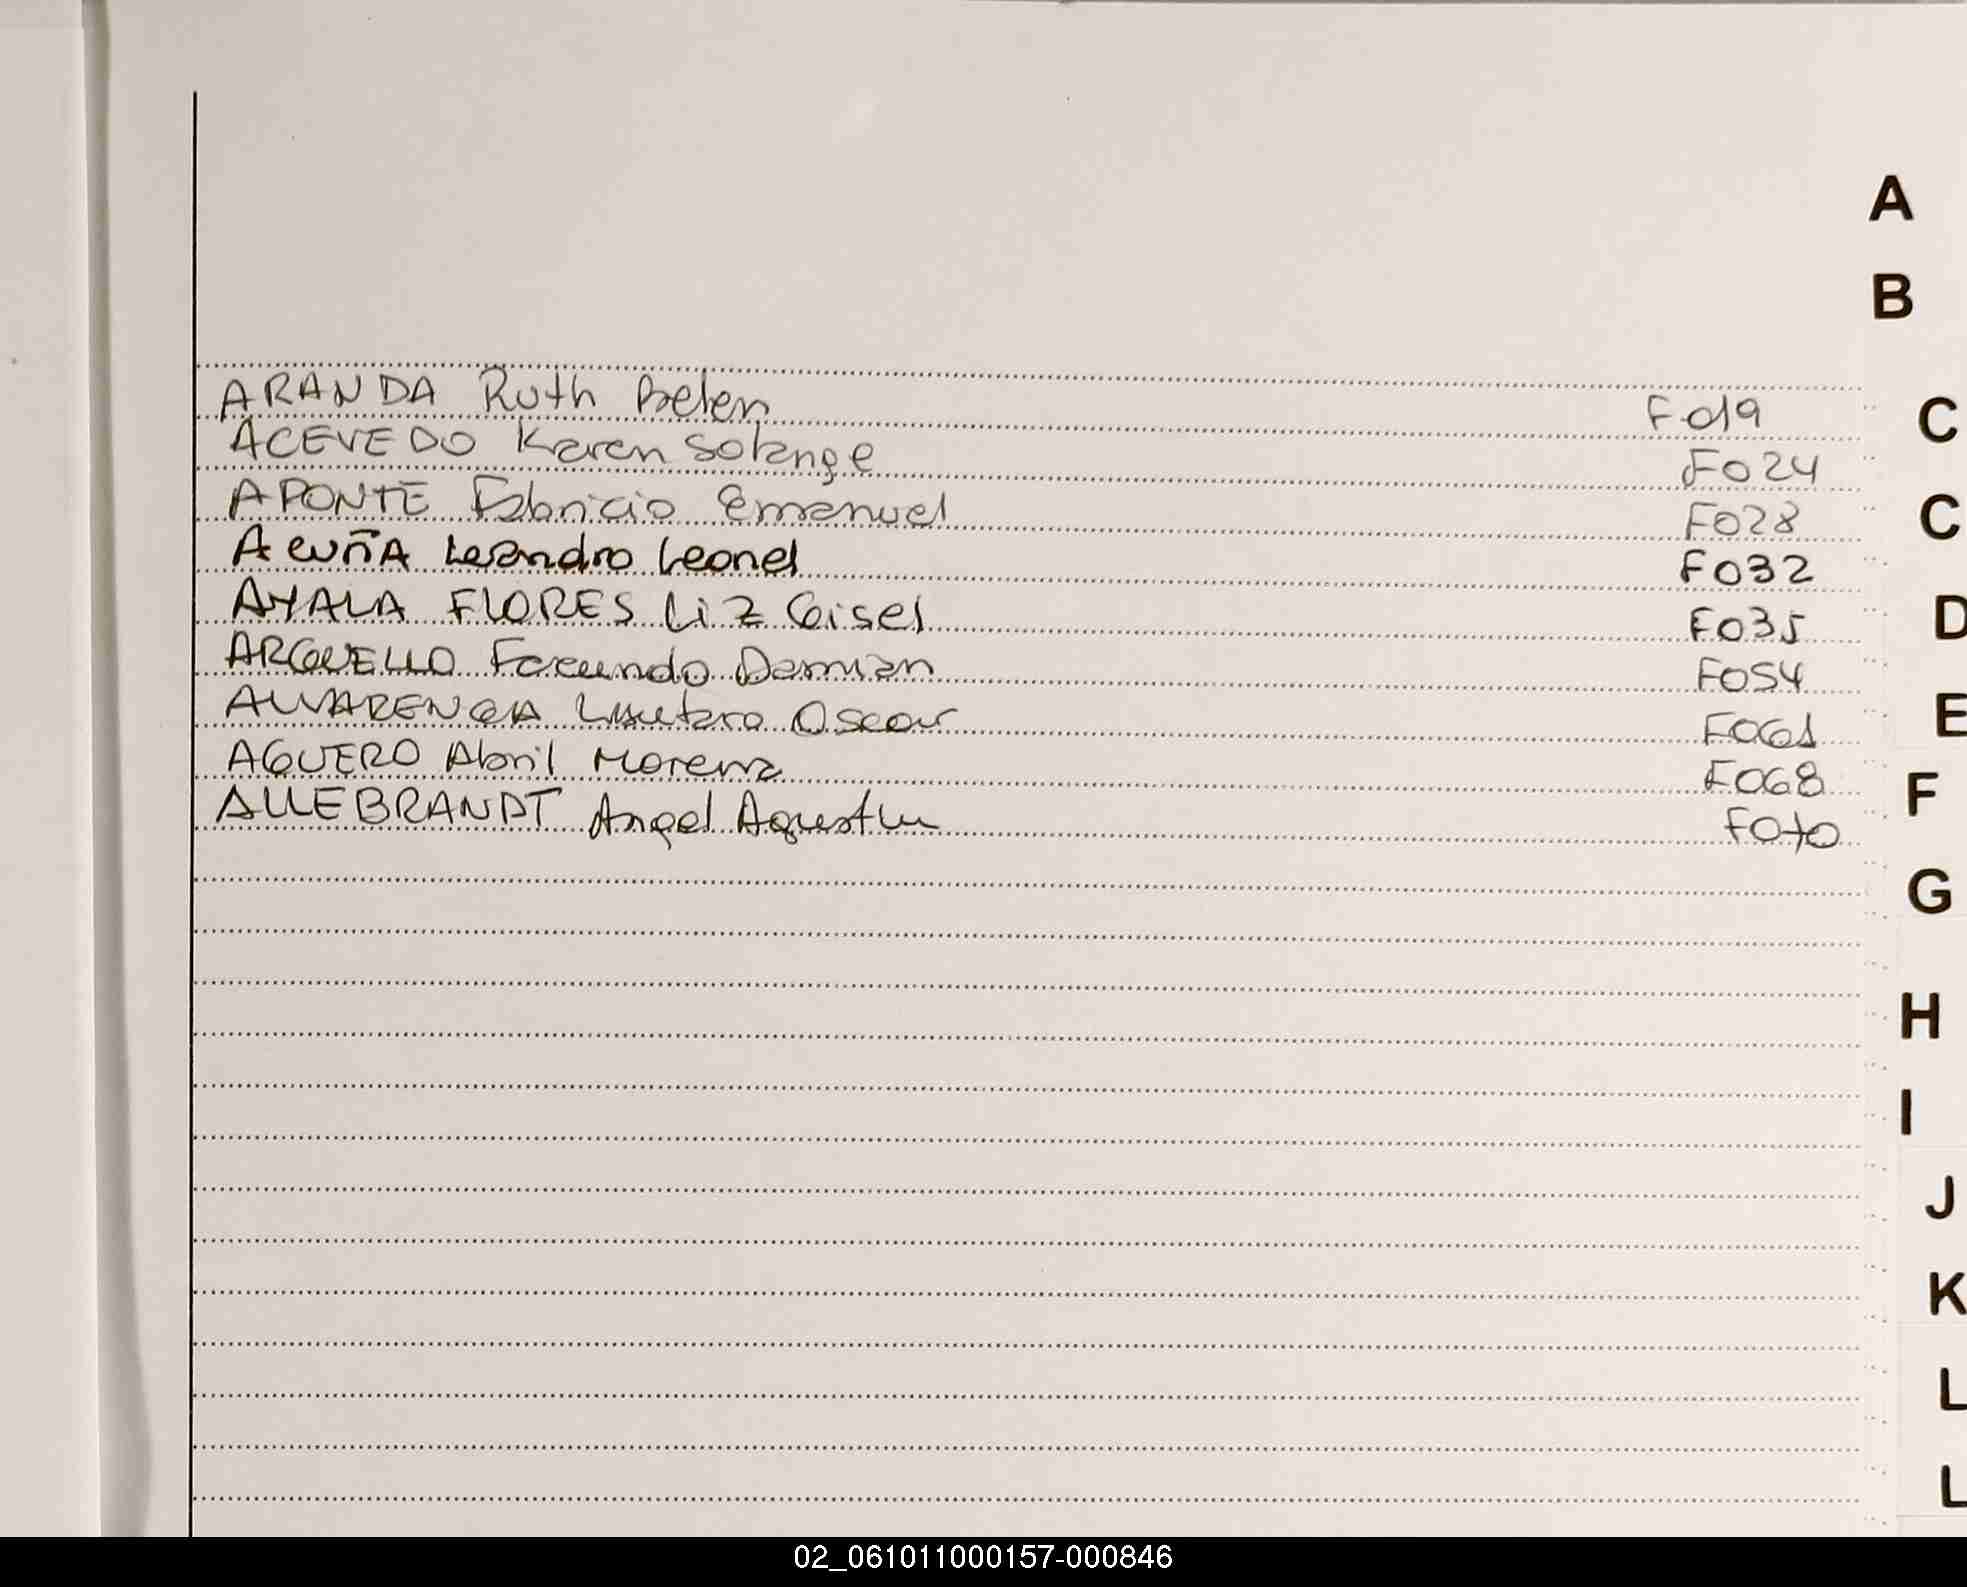 A
B
ARANDA Ruth Belen F019
ACEVEDO Karen Solange F024
C
APONTE Fabricio Emanuel F028
C
Acuña Leandro Leonel F032
AYALA FLORES Liz Gisel F035
D
ARGUELLO Facundo Damian F054
ALVARENGA Lautaro Oscar F061
E
AGUERO Abril Morena F068
ALLEBRANDT Angel Agustin F070
F
G
H
I
J
K
L
L
02_061011000157-000846